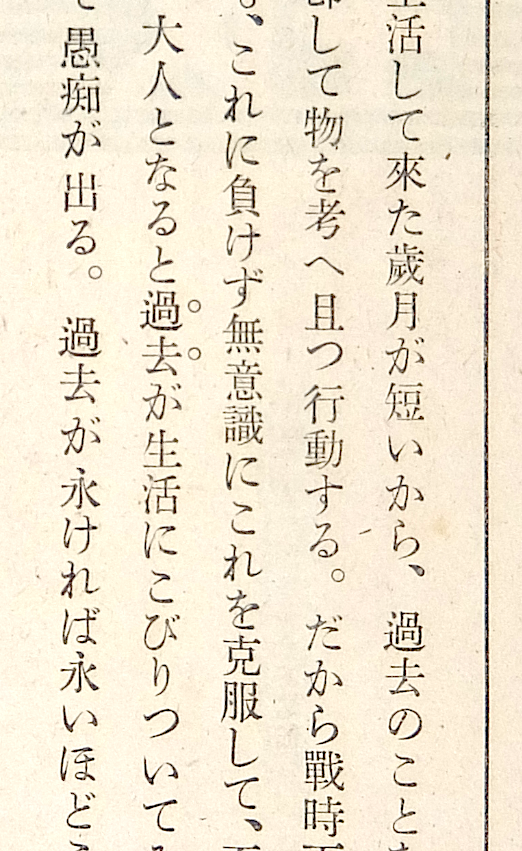 活して來た歲月が短いから、過去のこと
して物を考へ且つ行動する。だから戰時
、これに負けず無意識にこれを克服して、
大人となると過去が生活にこびりついて
愚痴が出る。過去が永ければ永いほど